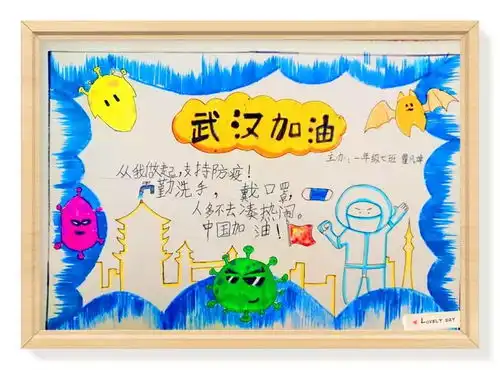 武汉加油
主办：一年级七班
从我做起，支持防疫！
勤洗手，戴口罩，
人多不去凑热闹。
中国加油！
LOVELY DAY